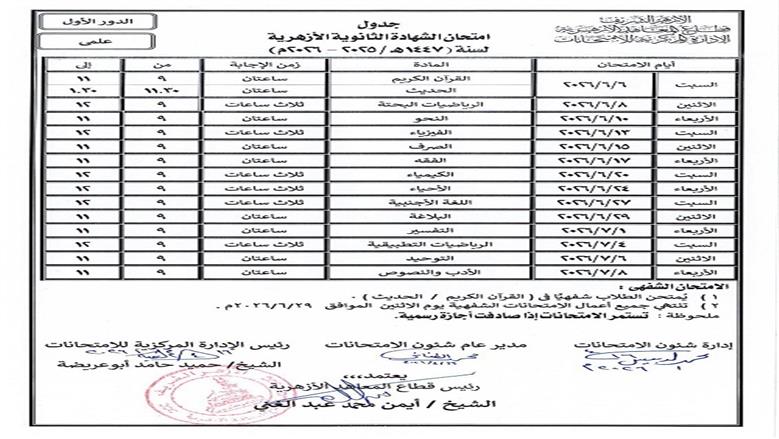 الأزهر الشريف
قطاع المعاهد الأزهرية
الإدارة المركزية للامتحانات
جدول
امتحان الشهادة الثانوية الأزهرية
لسنة (١٤٤٧هـ / ٢٠٢٥ - ٢٠٢٦م)
الدور الأول
علمى
أيام الامتحان المادة زمن الإجابة من إلى
السبت ٢٠٢٦/٦/٦ القرآن الكريم ساعتان ٩ ١١
الحديث ساعتان ١١.٣٠ ١.٣٠
الاثنين ٢٠٢٦/٦/٨ الرياضيات البحتة ثلاث ساعات ٩ ١٢
الأربعاء ٢٠٢٦/٦/١٠ النحو ساعتان ٩ ١١
السبت ٢٠٢٦/٦/١٣ الفيزياء ثلاث ساعات ٩ ١٢
الاثنين ٢٠٢٦/٦/١٥ الصرف ساعتان ٩ ١١
الأربعاء ٢٠٢٦/٦/١٧ الفقه ساعتان ٩ ١١
السبت ٢٠٢٦/٦/٢٠ الكيمياء ثلاث ساعات ٩ ١٢
الأربعاء ٢٠٢٦/٦/٢٤ الأحياء ثلاث ساعات ٩ ١٢
السبت ٢٠٢٦/٦/٢٧ اللغة الأجنبية ثلاث ساعات ٩ ١٢
الاثنين ٢٠٢٦/٦/٢٩ البلاغة ساعتان ٩ ١١
الأربعاء ٢٠٢٦/٧/١ التفسير ساعتان ٩ ١١
السبت ٢٠٢٦/٧/٤ الرياضيات التطبيقية ثلاث ساعات ٩ ١٢
الاثنين ٢٠٢٦/٧/٦ التوحيد ساعتان ٩ ١١
الأربعاء ٢٠٢٦/٧/٨ الأدب والنصوص ساعتان ٩ ١١
الامتحان الشفهى :
١ ) يُمتحن الطلاب شفهيًا فى ( القرآن الكريم / الحديث ) .
٢ ) تنتهي جميع أعمال الامتحانات الشفهية يوم الاثنين الموافق ٢٠٢٦/٦/٢٩م .
ملحوظة : تستمر الامتحانات إذا صادفت أجازة رسمية.
إدارة شئون الامتحانات مدير عام شئون الامتحانات رئيس الإدارة المركزية للامتحانات
الشيخ/ حميد حامد أبوعريضة
يعتمد،،،
رئيس قطاع المعاهد الأزهرية
الشيخ / أيمن محمد عبد الغني